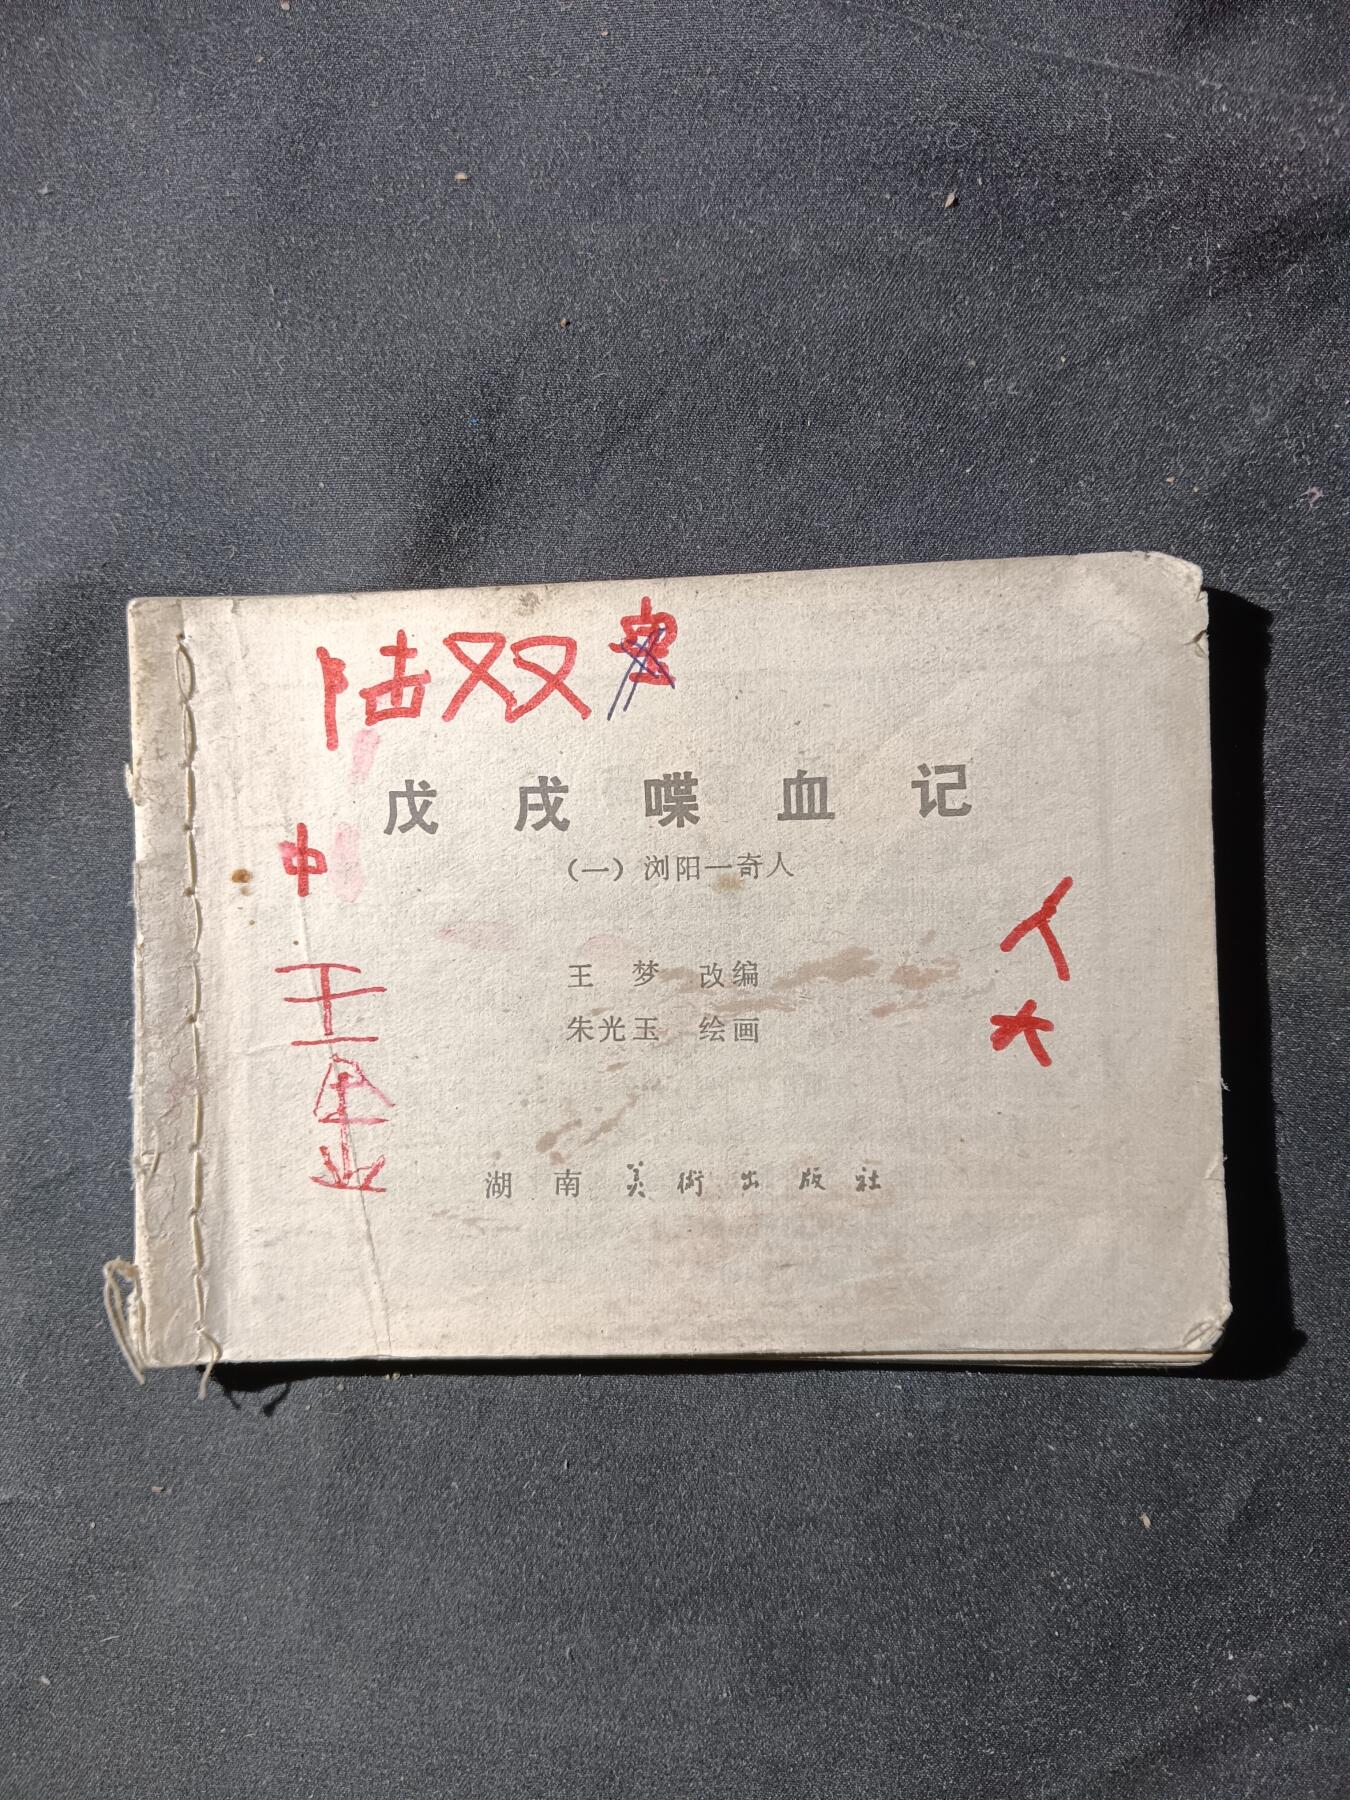 陆双
戊戌喋血记
（一）浏阳一奇人
中
王 梦 改编
人
王
朱光玉 绘画
大
金
湖南美術出版社